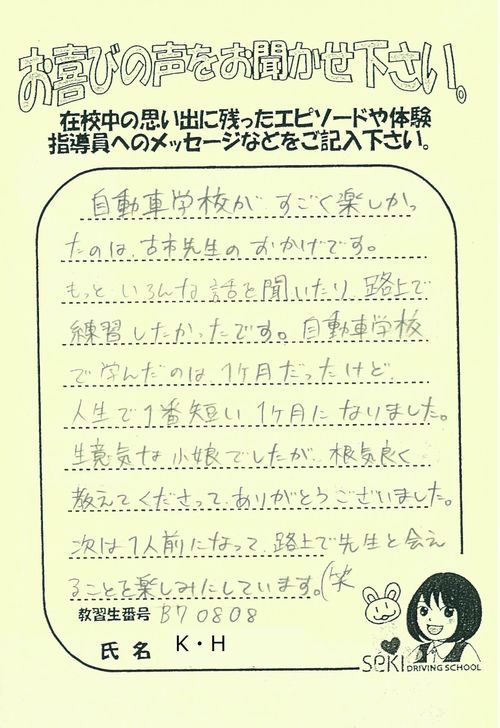 お喜びの声をお聞かせ下さい。
在校中の思い出に残ったエピソードや体験
指導員へのメッセージなどをご記入下さい。
自動車学校が、すごく楽しかっ
たのは、古市先生のおかげです。
もっと、いろんな話を聞いたり、路上で
練習したかったです。自動車学校
で学んだのは、1ヶ月だったけど、
人生で1番短い1ヶ月になりました。
生意気な小娘でしたが、根気良く
教えてくださって、ありがとうございました。
次は1人前になって、路上で先生と会え
ることを楽しみにしています。(笑
教習生番号 B70808
氏名 K・H
SEKI DRIVING SCHOOL